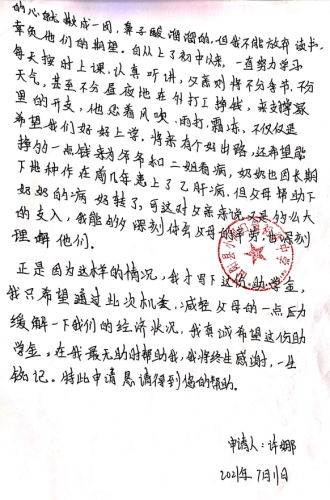 的心就揪成一团，鼻子酸溜溜的，但我不能放弃读书，
辜负他们的期望。自从上了初中以来，一直努力学习
每天按时上课，认真听讲，父亲则将不分季节，不分
天气，甚至不分昼夜地在外打工挣钱，来支撑家
里的开支，他忍着风吹、雨打、霜冻，不仅仅是
希望我们好好上学，将来有个好出路，还希望能
挣的一点钱来为爷爷和二姐看病，奶奶也因长期
下地种作在前几年患上了乙肝病，但父母帮助下
奶奶的病好转了，可这对父亲来说又是多么大
的支入，我能够深刻体会父母的辛劳，也深刻
理解他们。
正是因为这样的情况，我才写下这份助学金，
我只希望通过此次机会，减轻父母的一点压力
缓解一下我们的经济状况，我真诚希望这份助
学金，在我最无助时帮助我，我将终生感谢，一生
铭记。特此申请恳请得到您的帮助。
申请人：许娜
2021年7月1日